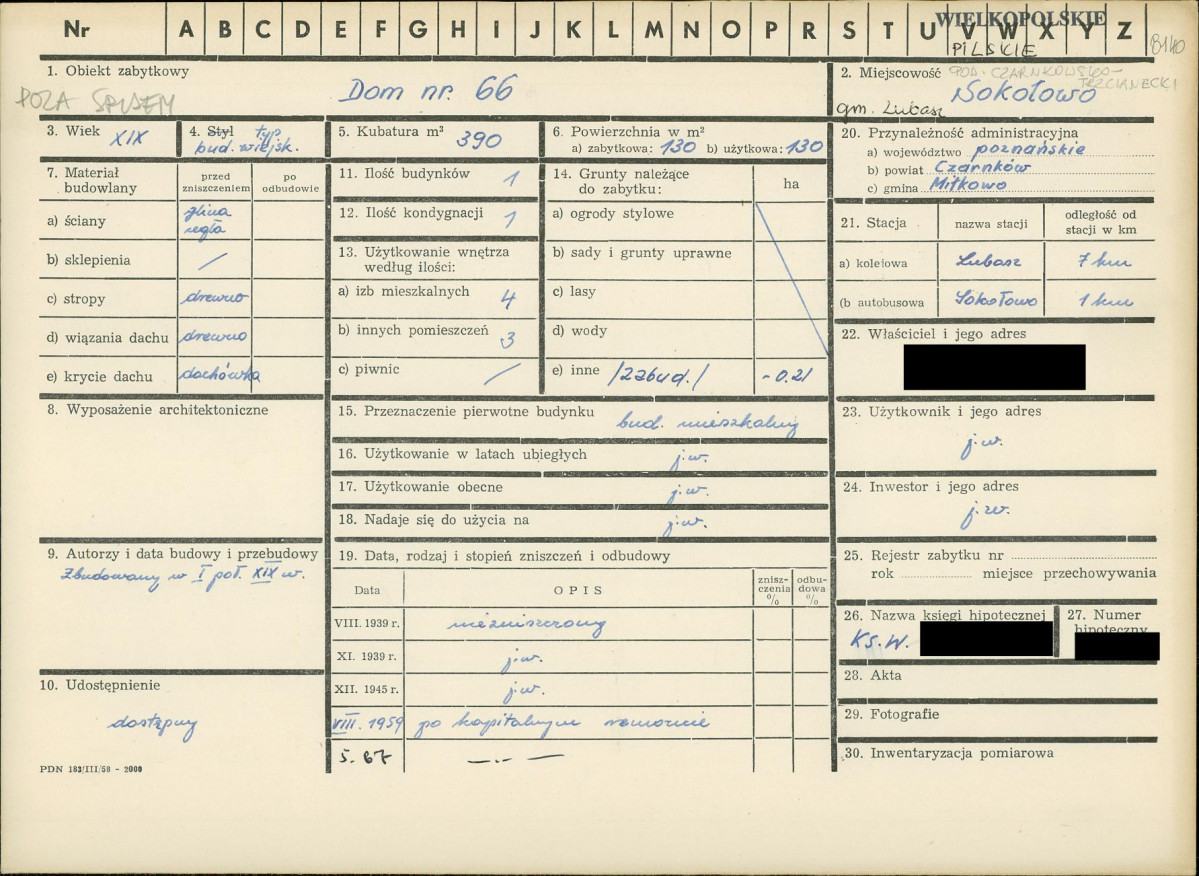 Nr A B C D E F G H I J K L M N O P R S T U V W X Y Z
WIELKOPOLSKIE
PILSKIE
8140
1. Obiekt zabytkowy
POZA SPISEM
Dom nr. 66
2. Miejscowość POD. CZARNKOWSKO-
TRZCIANECKI
Sokołowo
gm. Lubasz
3. Wiek
XIX
4. Styl typ
bud. wiejsk.
5. Kubatura m³
390
6. Powierzchnia w m²
a) zabytkowa: 130 b) użytkowa: 130
7. Materiał
budowlany
przed
zniszczeniem
po
odbudowie
a) ściany
glina
regla
b) sklepienia /
c) stropy drewno
d) wiązania dachu drewno
e) krycie dachu dachówka
8. Wyposażenie architektoniczne
9. Autorzy i data budowy i przebudowy
Zbudowany w I poł. XIX w.
10. Udostępnienie
dostępny
PDN 183/III/58 - 2000
11. Ilość budynków 1
12. Ilość kondygnacji 1
13. Użytkowanie wnętrza
według ilości:
a) izb mieszkalnych 4
b) innych pomieszczeń 3
c) piwnic /
14. Grunty należące
do zabytku:
ha
a) ogrody stylowe
b) sady i grunty uprawne
c) lasy
d) wody
e) inne /zabud./ - 0.21
15. Przeznaczenie pierwotne budynku
bud. mieszkalny
16. Użytkowanie w latach ubiegłych
j.w.
17. Użytkowanie obecne
j.w.
18. Nadaje się do użycia na
j.w.
19. Data, rodzaj i stopień zniszczeń i odbudowy
Data
OPIS
znisz-
czenia
%
odbu-
dowa
%
VIII. 1939 r. niezniszczony
XI. 1939 r. j.w.
XII. 1945 r. j.w.
VIII. 1959 po kapitalnym remoncie
5. 67 — . — . —
20. Przynależność administracyjna
a) województwo poznańskie
b) powiat Czarnków
c) gmina Miłkowo
21. Stacja
nazwa stacji
odległość od
stacji w km
a) kolejowa Lubasz 7 km
(b autobusowa Sokołowo 1 km
22. Właściciel i jego adres
23. Użytkownik i jego adres
j.w.
24. Inwestor i jego adres
j.w.
25. Rejestr zabytku nr
rok miejsce przechowywania
26. Nazwa księgi hipotecznej
KS.W.
27. Numer
hipoteczny
28. Akta
29. Fotografie
30. Inwentaryzacja pomiarowa